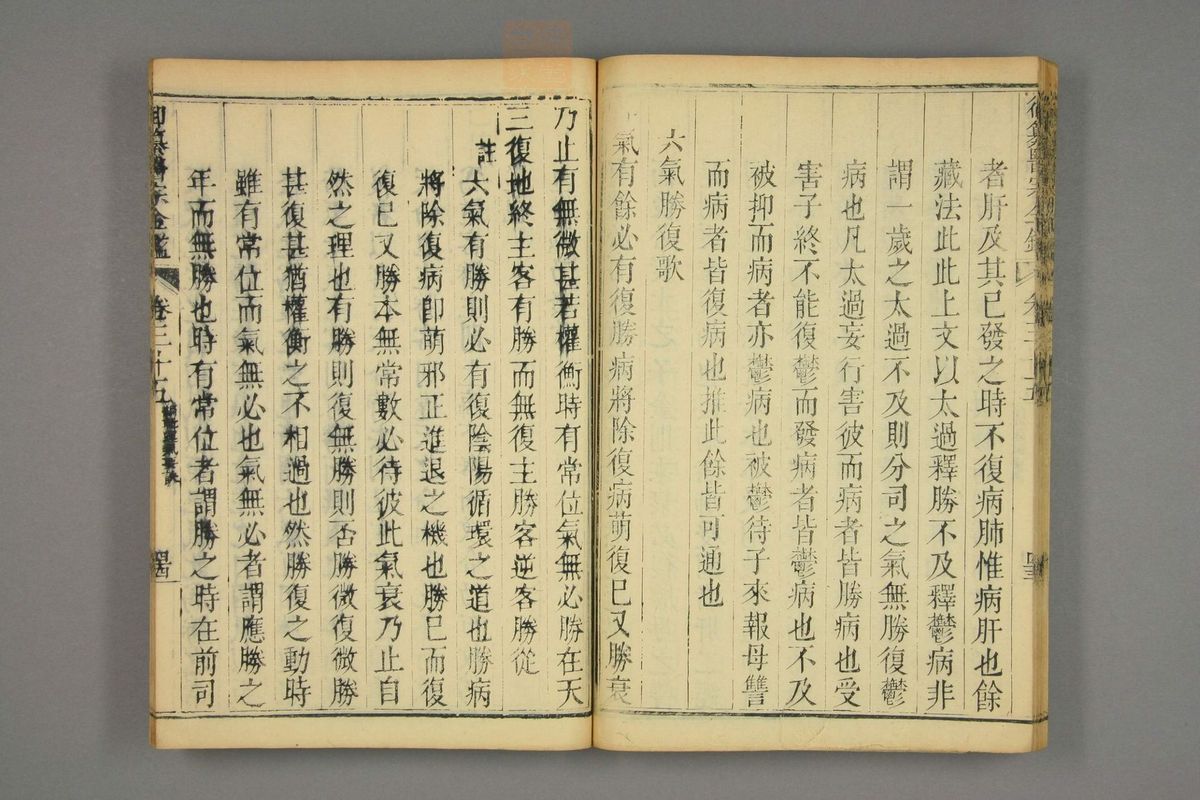 者肝及其已發之時不復病肺惟病肝也餘
藏法此此上文以太過釋勝不及釋鬱病非
謂一歲之太過不及則分司之氣無勝復鬱
病也凡太過妄行害彼而病者皆勝病也受
害子終不能復鬱而發病者皆鬱病也不及
被抑而病者亦鬱病也被鬱待子來報母讐
而病者皆復病也推此餘皆可通也
六氣勝復歌
氣有餘必有復勝病將除復病萌復已又勝衰
乃止有無微甚若權衡時有常位氣無必勝在天
三復地終主客有勝而無復主勝客逆客勝從
註六氣有勝則必有復陰陽循環之道也勝病
將除復病卽萌邪正進退之機也勝已而復
復已又勝本無常數必待彼此氣衰乃止自
然之理也有勝則復無勝則否勝微復微勝
甚復甚猶權衡之不相過也然勝復之動時
雖有常位而氣無必也氣無必者謂應勝之
年而無勝也時有常位者謂勝之時在前司
御纂醫宗金鑑
卷三十五